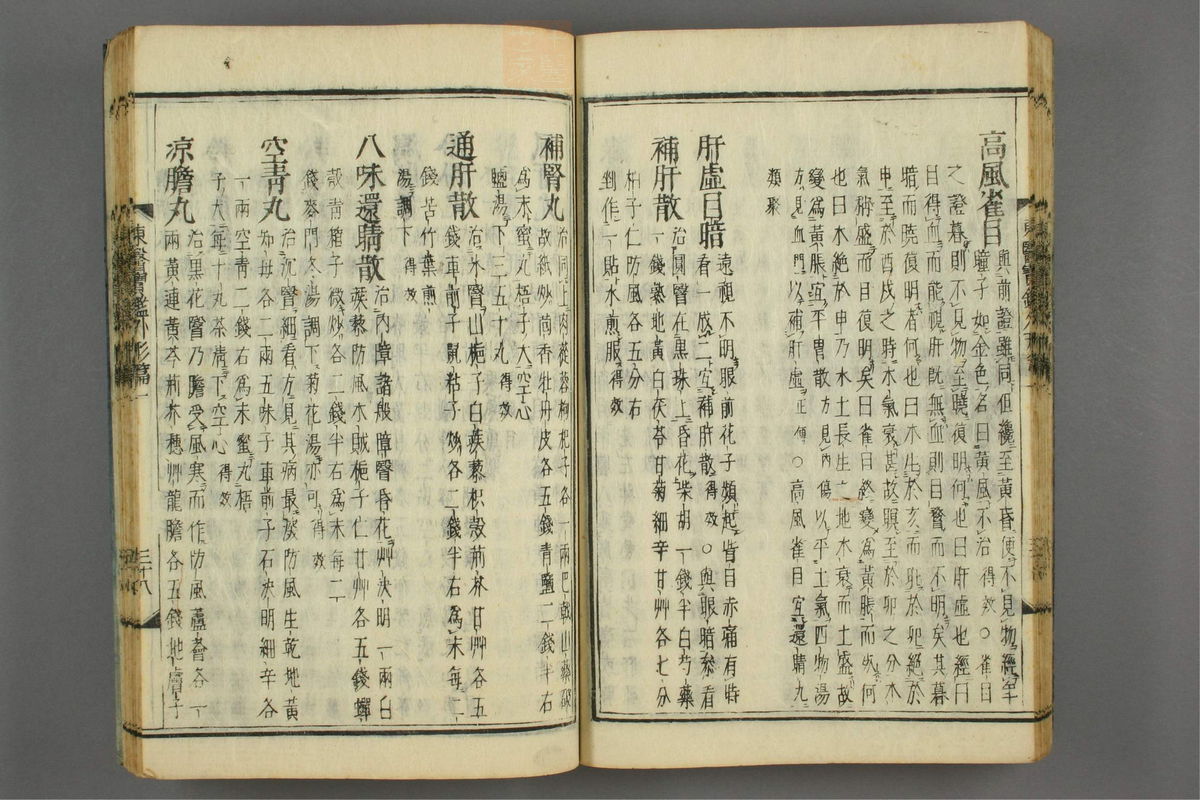 高風雀目 與前證雖同但纔至黃昏便不見物經年
瞳子如金色名曰黃風不治得效○雀目
之證暮則不見物至曉復明何也曰肝虛也經曰
目得血而能視肝既無血則目瞖而不明矣其暮
暗而曉復明者何也曰木生於亥而旺於卯絕於
申至於酉戌之時木氣衰甚故暝至於卯之分木
氣稍盛而目復明矣曰雀目終變爲黃脹而死何
也曰木絕於申乃水土長生之地木衰而土盛故
變爲黃脹宜平胃散方見內傷以平土氣四物湯
方見血門以補肝虛正傳○高風雀目宜還睛丸
類聚
肝虛目暗 遠視不明眼前花子頻起眥目赤痛有時
看一成二宜補肝散得效○與眼暗參看
補肝散 治圓瞖在黑珠上昏花柴胡一錢半白芍藥
一錢熟地黃白茯苓甘菊細辛甘艸各七分
柏子仁防風各五分右
剉作一貼水煎服得效
補腎丸 治同上肉蓯蓉枸杞子各一兩巴戟山藥破
故紙炒茴香牡丹皮各五錢青鹽二錢半右
爲末蜜丸梧子大空心
鹽湯下三五十丸得效
通肝散 治冰瞖山梔子白蒺藜枳殼荊芥甘艸各五
錢車前子鼠粘子炒各二錢半右爲末每二
錢苦竹葉煎
湯調下得效
八味還睛散 治內障諸般障瞖昏花艸決明一兩白
蒺藜防風木賊梔子仁甘艸各五錢蟬
殼青箱子微炒各二錢半右爲末每二
錢麥門冬湯調下菊花湯亦可得效
空青丸 治沉瞖細看方見其病最深防風生乾地黃
知母各二兩五味子車前子石決明細辛各
一兩空青二錢右爲末蜜丸梧
子大每十丸茶清下空心得效
凉膽丸 治黑花瞖乃膽受風寒而作防風蘆薈各一
兩黃連黃芩荊芥穗艸龍膽各五錢地膚子
東醫寶鑑外形篇一
三十八